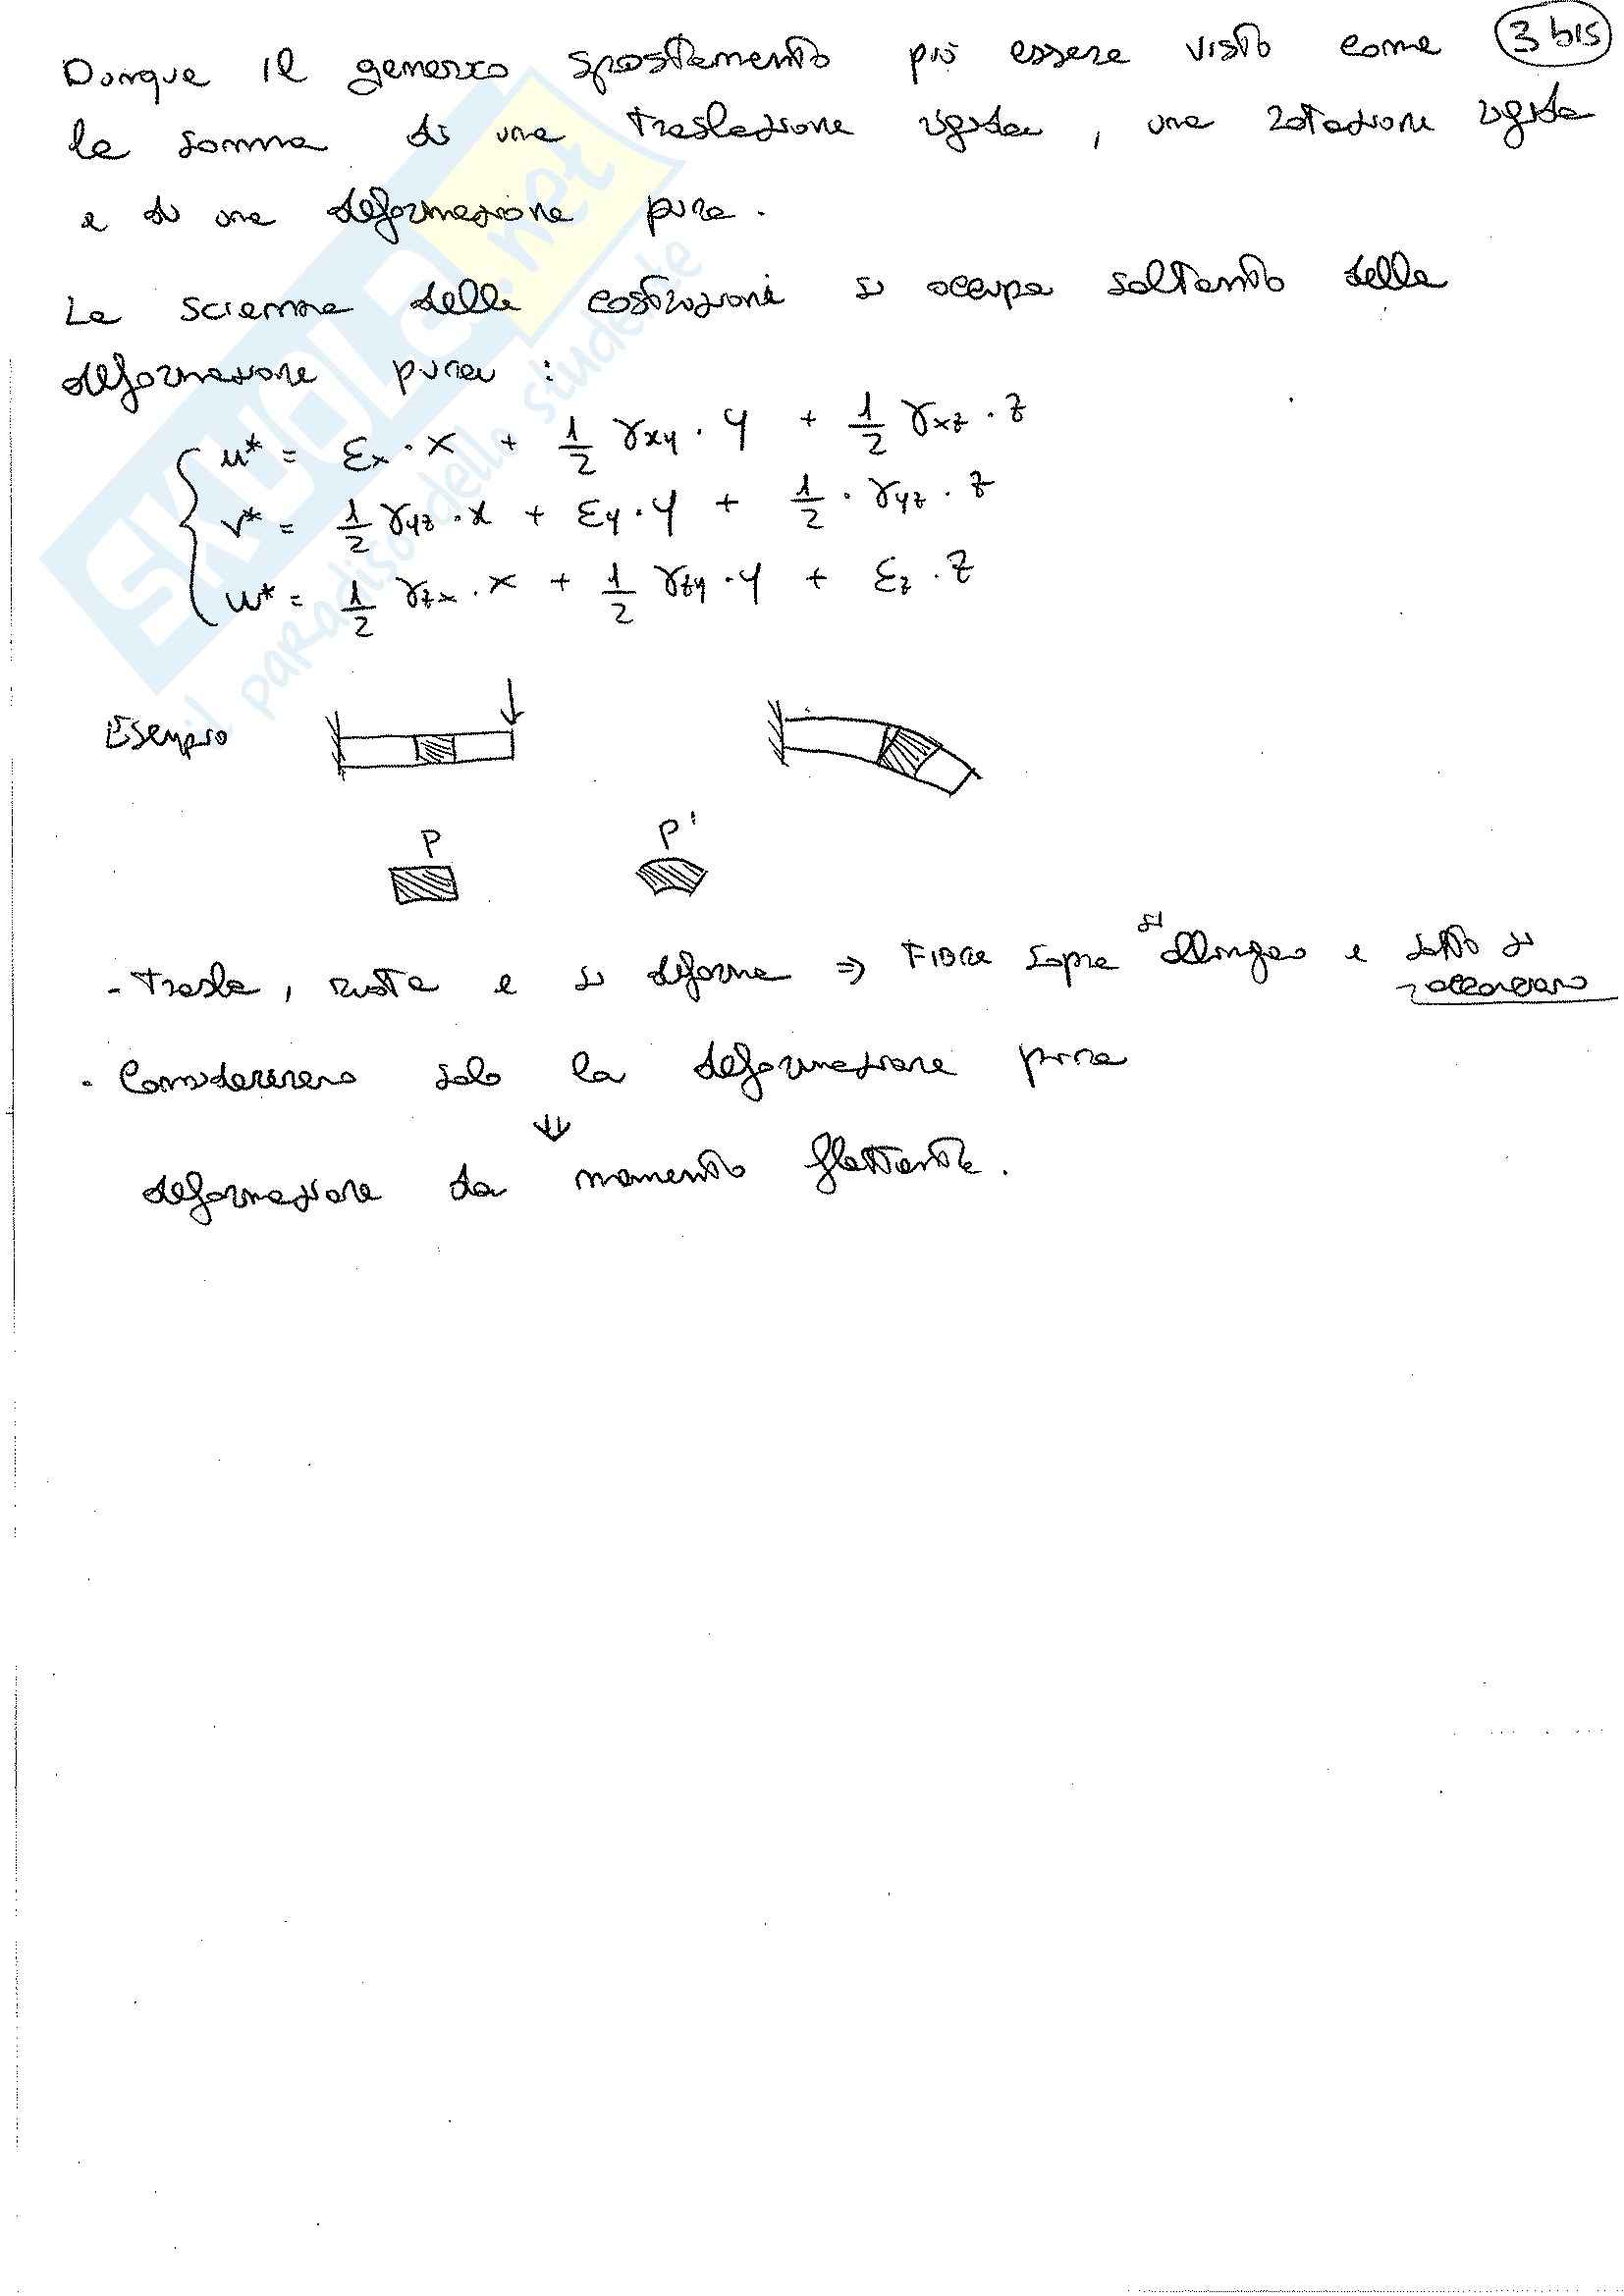 3 bis
Dunque il generico spostamento può essere visto come
la somma di una traslazione rigida, una rotazione rigida
e di una deformazione pura.
La scienza delle costruzioni si occupa soltanto della
deformazione pura :
u* = εx · x + 1/2 γxy · y + 1/2 γxz · z
v* = 1/2 γyz · x + εy · y + 1/2 · γyz · z
w* = 1/2 γzx · x + 1/2 γzy · y + εz · z
Esempio
P P'
- Trasla, ruota e si deforma ⇒ Fibre sopra si allungano e sotto si
accorciano
- Considereremo solo la deformazione pura
⇓
deformazione da momento flettente.
SKUOLA.net
il paradiso dello studente